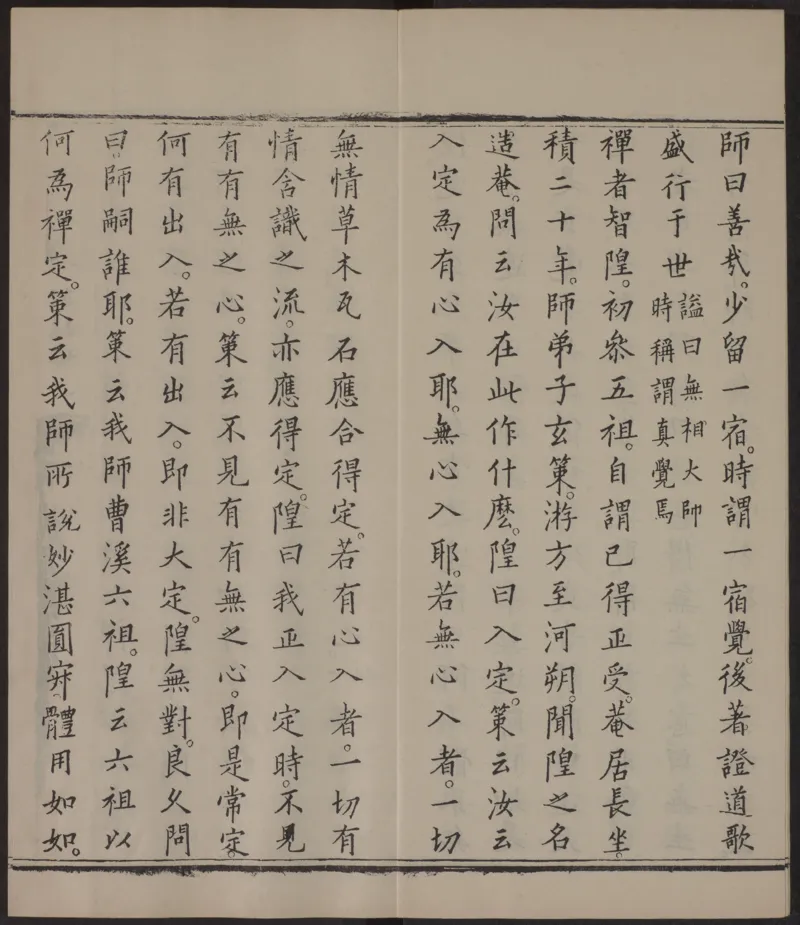 師曰善㢤。少留一宿。時謂一宿覺。後著證道歌
盛行于世
諡曰無相大師
時稱謂真覺焉
禪者智隍。初叅五祖。自謂已得正受。菴居長坐。
積二十年。師弟子玄策。游方至河朔。聞隍之名
造菴。問云汝在此作什麽。隍曰入定。策云汝云
入定為有心入耶。無心入耶。若無心入者。一切
無情草木瓦石應合得定。若有心入者。一切有
情含識之流。亦應得定。隍曰我正入定時。不見
有有無之心。策云不見有有無之心。即是常定。
何有出入。若有出入。即非大定。隍無對。良久問
曰。師嗣誰耶。策云我師曹溪六祖。隍云六祖以
何為禪定。策云我師所說妙湛圓寂。體用如如。